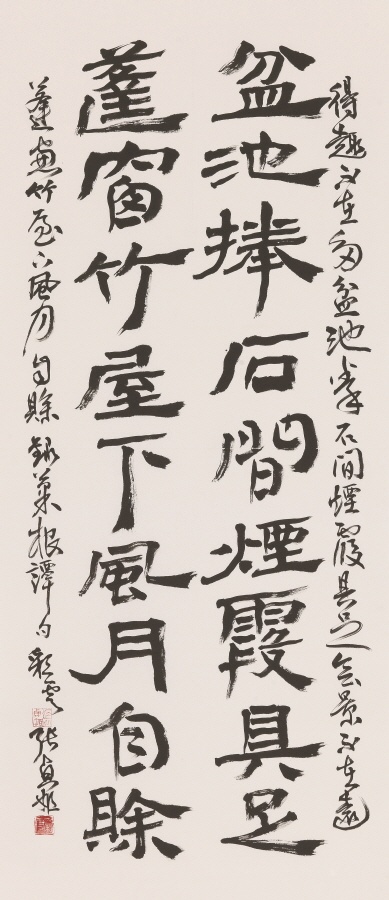 得趣不在多盆池拳石間煙霞具足会景不在遠
盆池捧石間煙霞具足
蓬窗竹屋下風月自賖
蓬窓竹屋下風月自賖錄菜根譚句彩雲張貞